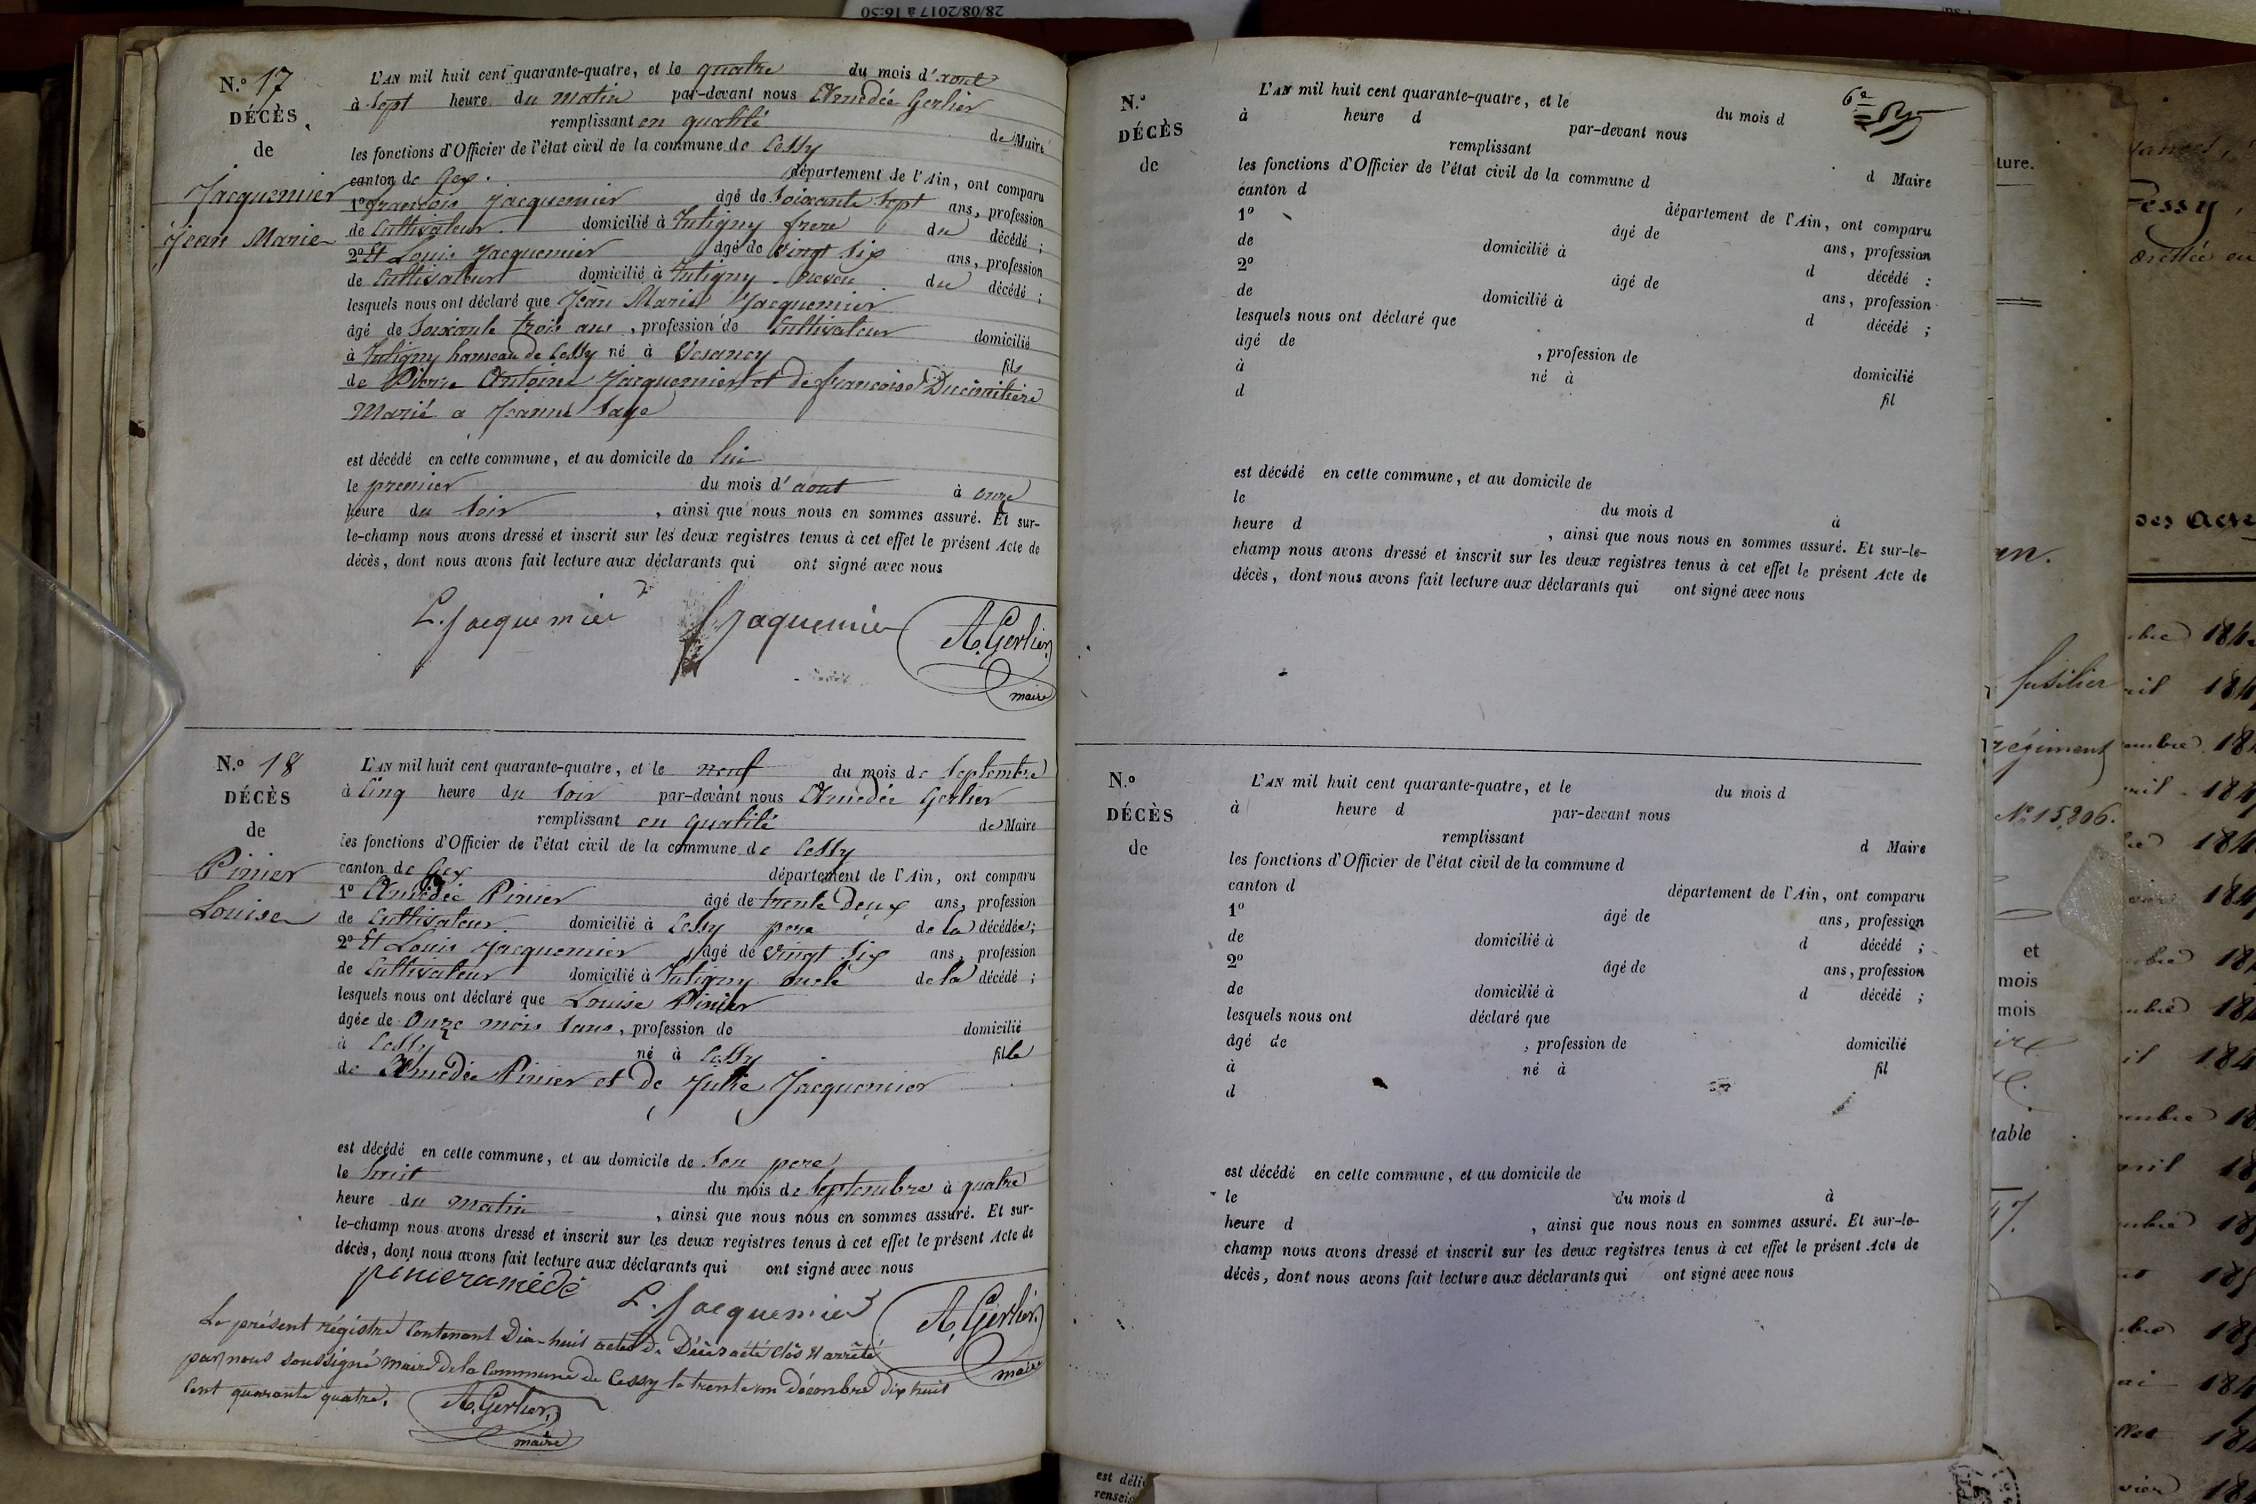 28/08/2017 à 16:50
N.º 17
DÉCÈS
de
Jacquemier
Jean Marie
L'AN mil huit cent quarante-quatre, et le quatre du mois d'aout
à Sept heure du Matin par-devant nous Amedée Gerlier
remplissant en qualité de Maire
les fonctions d'Officier de l'état civil de la commune de Cessy
canton de Gex. département de l'Ain, ont comparu
1º françois Jacquemier âgé de Soixante Sept ans, profession
de Cultivateur domicilié à Tutigny frere du décédé ;
2º Et Louis Jacquemier âgé de vingt six ans, profession
de Cultivateur domicilié à Tutigny neveu du décédé ;
lesquels nous ont déclaré que Jean Marie Jacquemier
âgé de Soixante trois ans, profession de Cultivateur domicilié
à Tutigny hameau de Cessy né à Vesancy fils
de Pierre Antoine Jacquemier et de françoise Ducimitiere
Marié a Jeanne Sage
est décédé en cette commune, et au domicile de lui
le premier du mois d'aout à onze
heure du Soir , ainsi que nous nous en sommes assuré. Et sur-
le-champ nous avons dressé et inscrit sur les deux registres tenus à cet effet le présent Acte de
décès, dont nous avons fait lecture aux déclarants qui ont signé avec nous
L. Jacquemier Jaquemier A. Gerlier
maire
N.º 18
DÉCÈS
de
Pinier
Louise
L'AN mil huit cent quarante-quatre, et le neuf du mois de Septembre
à Cinq heure du Soir par-devant nous Amedée Gerlier
remplissant en qualité de Maire
les fonctions d'Officier de l'état civil de la commune de Cessy
canton de Gex département de l'Ain, ont comparu
1º Amédée Pinier âgé de trente deux ans, profession
de Cultivateur domicilié à Cessy pere de la décédée ;
2º Et Louis Jacquemier âgé de vingt six ans, profession
de Cultivateur domicilié à Tutigny oncle de la décédé ;
lesquels nous ont déclaré que Louise Pinier
âgée de Onze mois Sans, profession de domicilié
à Cessy né à Cessy fille
de Amedée Pinier et de Julie Jacquemier
est décédé en cette commune, et au domicile de Son pere
le huit du mois de Septembre à quatre
heure du Matin , ainsi que nous nous en sommes assuré. Et sur-
le-champ nous avons dressé et inscrit sur les deux registres tenus à cet effet le présent Acte de
décès, dont nous avons fait lecture aux déclarants qui ont signé avec nous
pinieramédé L. Jacquemier A. Gerlier
maire
Le présent régistre Contenant Dix-huit actes de Décès a été clôs et arrêté
par nous soussigné maire de la Commune de Cessy le trente un Décembre dix huit
Cent quarante quatre. A. Gerlier
maire
6e
N.º
DÉCÈS
de
L'AN mil huit cent quarante-quatre, et le du mois d
à heure d par-devant nous
remplissant d Maire
les fonctions d'Officier de l'état civil de la commune d
canton d département de l'Ain, ont comparu
1º âgé de ans, profession
de domicilié à d décédé ;
2º âgé de ans, profession
de domicilié à d décédé ;
lesquels nous ont déclaré que
âgé de , profession de domicilié
à né à fil
d
est décédé en cette commune, et au domicile de
le du mois d à
heure d , ainsi que nous nous en sommes assuré. Et sur-le-
champ nous avons dressé et inscrit sur les deux registres tenus à cet effet le présent Acte de
décès, dont nous avons fait lecture aux déclarants qui ont signé avec nous
N.º
DÉCÈS
de
L'AN mil huit cent quarante-quatre, et le du mois d
à heure d par-devant nous
remplissant d Maire
les fonctions d'Officier de l'état civil de la commune d
canton d département de l'Ain, ont comparu
1º âgé de ans, profession
de domicilié à d décédé ;
2º âgé de ans, profession
de domicilié à d décédé ;
lesquels nous ont déclaré que
âgé de , profession de domicilié
à né à fil
d
est décédé en cette commune, et au domicile de
le du mois d à
heure d , ainsi que nous nous en sommes assuré. Et sur-le-
champ nous avons dressé et inscrit sur les deux registres tenus à cet effet le présent Acte de
décès, dont nous avons fait lecture aux déclarants qui ont signé avec nous
ture.
fusilier
régiment
Nº 15,206.
et
mois
mois
table
est déli
renseig